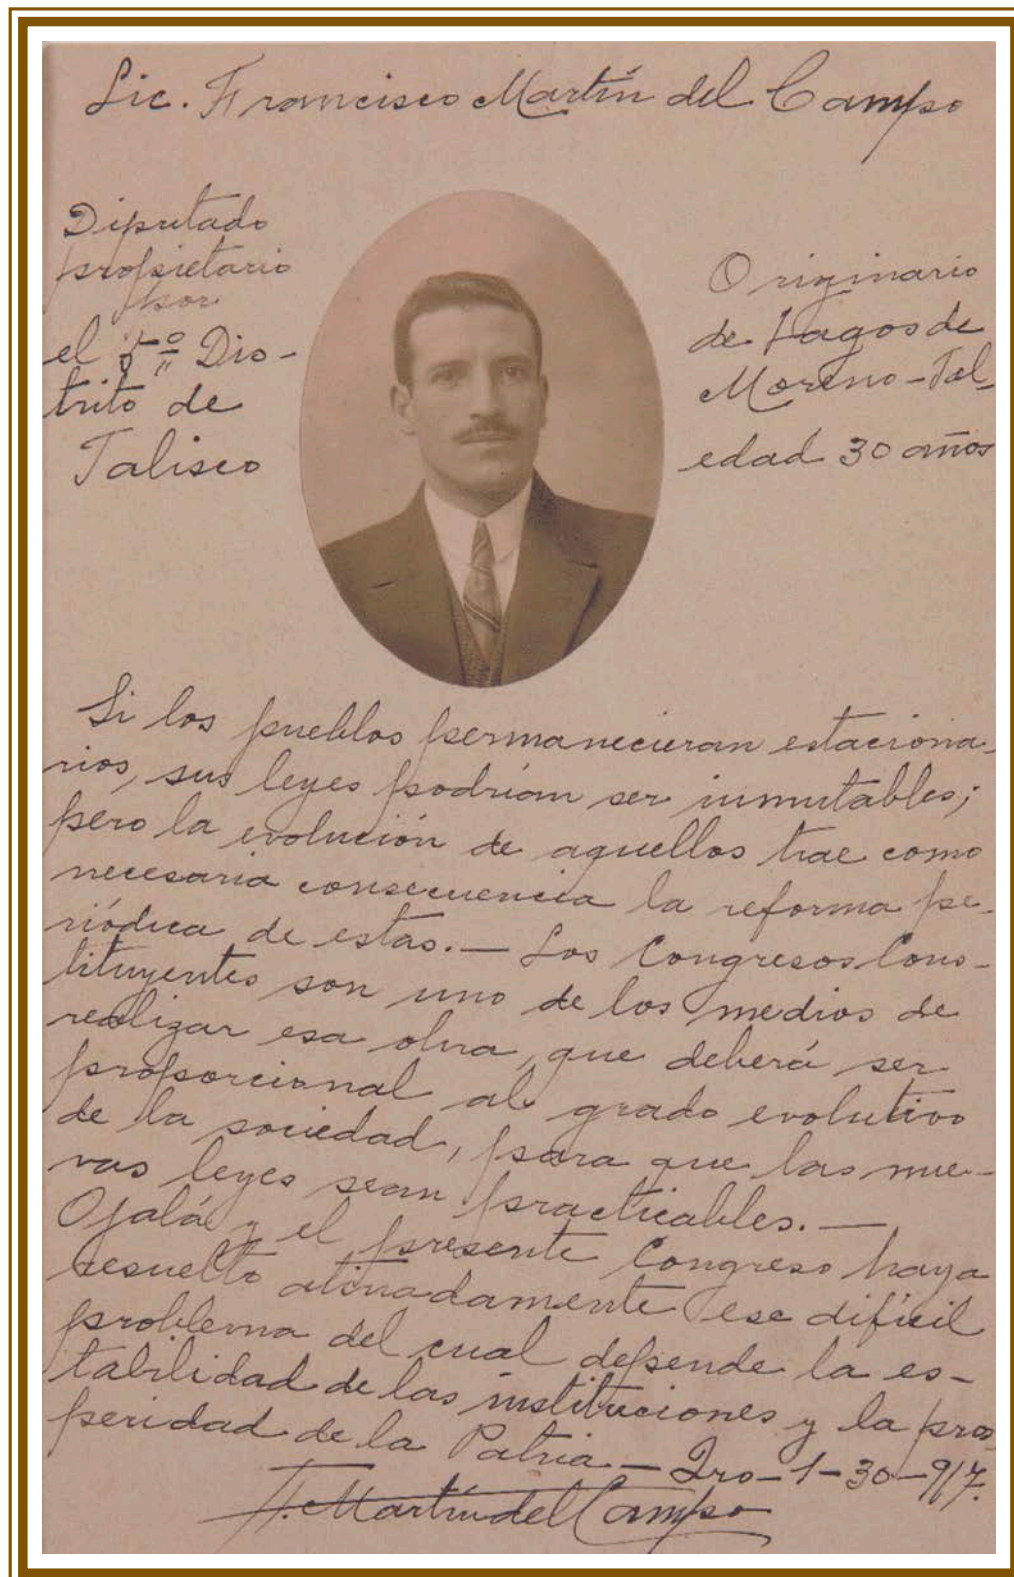 Lic. Francisco Martín del Campo
Diputado
propietario
por
el 5º Dis-
trito de
Jalisco
Originario
de Lagos de
Moreno-Jal.
edad 30 años
Si los pueblos permanecieran estaciona-
rios, sus leyes podrían ser inmutables;
pero la evolución de aquellos trae como
necesaria consecuencia la reforma pe-
riódica de estas.— Los Congresos Cons-
tituyentes son uno de los medios de
realizar esa obra, que deberá ser
proporcional al grado evolutivo
de la sociedad, para que las nue-
vas leyes sean practicables.—
Ojalá y el presente Congreso haya
resuelto atinadamente ese difícil
problema del cual depende la es-
tabilidad de las instituciones y la pros-
peridad de la Patria.— Qro-1-30-917.
F. Martín del Campo